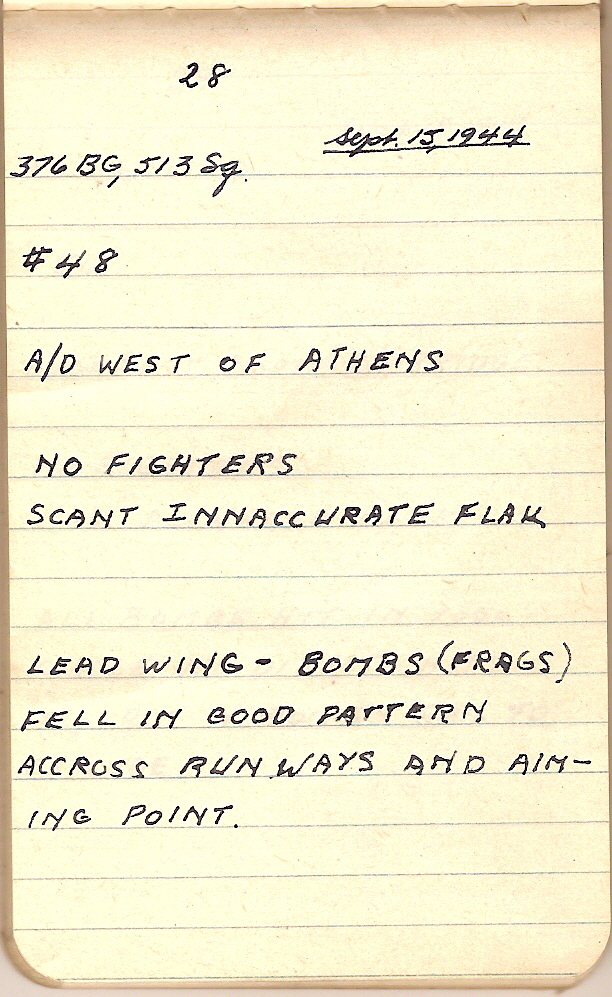 28
Sept. 15, 1944
376 BG, 513 Sq.
#48
A/D WEST OF ATHENS
NO FIGHTERS
SCANT INNACCURATE FLAK
LEAD WING - BOMBS (FRAGS)
FELL IN GOOD PATTERN
ACCROSS RUNWAYS AND AIM-
ING POINT.